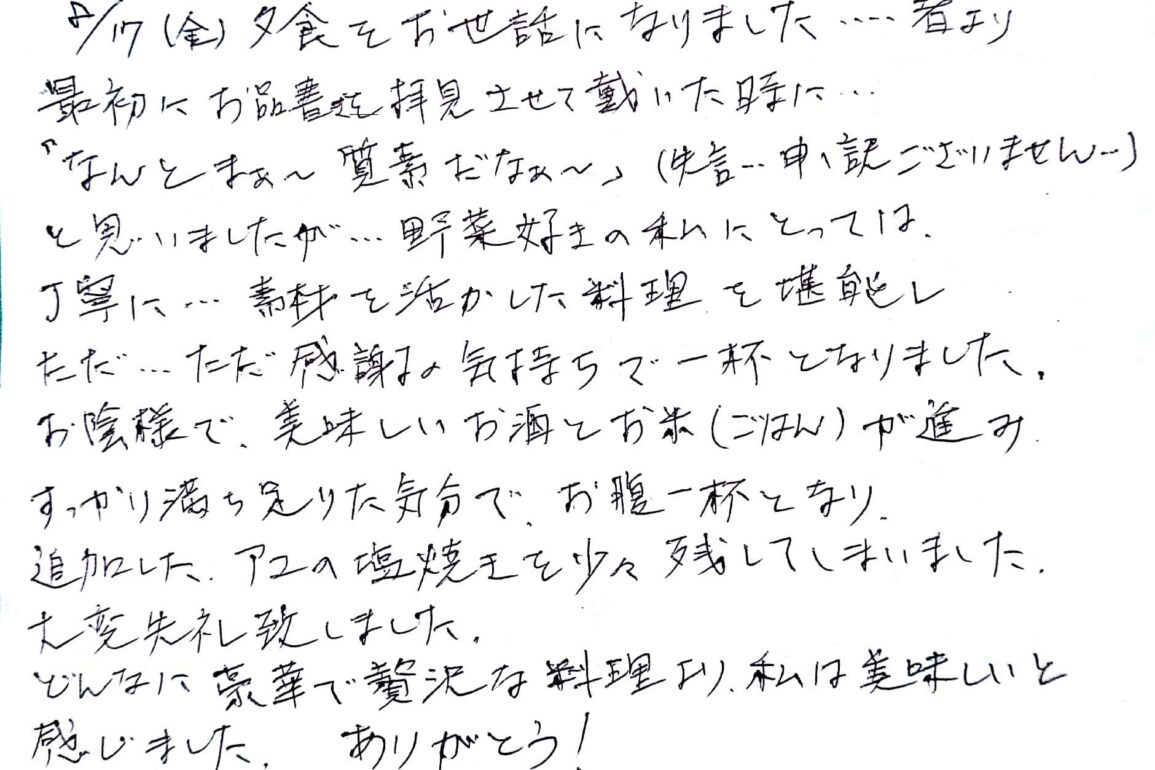 8/17(金)夕食をお世話になりました‥‥者より
最初にお品書を拝見させて戴いた時に…
「なんとまぁ～質素だなぁ～」(失言…申し訳ございません…)
と思いましたが…野菜好きの私にとっては、
丁寧に…素材を活かした料理を堪能し
ただ…ただ感謝の気持ちで一杯となりました。
お陰様で、美味しいお酒とお米(ごはん)が進み
すっかり満ち足りた気分で、お腹一杯となり、
追加した、アユの塩焼きを少々残してしまいました。
大変失礼致しました。
どんなに豪華で贅沢な料理より、私は美味しいと
感じました。 ありがとう!